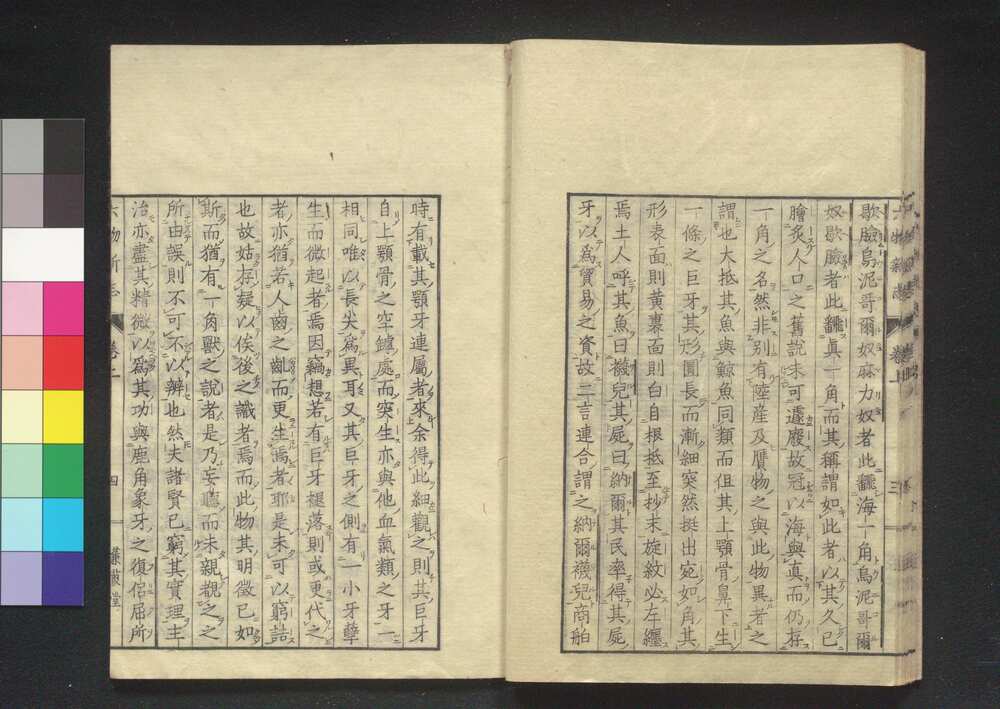 歇臉烏泥哥爾奴麻力奴者此飜海一角烏泥哥爾
奴歇臉者此飜真一角而其稱謂如此者以其久已
膾炙人口之舊說未可遽廢故冠以海與真而仍存
一角之名然非別有陸産及贋物之與此物異者之
謂也大抵其魚與鯨魚同類而但其上顎骨鼻下生
一條之巨牙其形圓長而漸細突然挺出宛如角其
形表面則黄裏面則白自根抵至抄末旋紋必左纏
焉土人呼其魚曰襪兒其屍曰納爾其民率得其屍
牙以為貿易之資故二言連合謂之納爾襪兒商舶
時有載其顎牙連屬者來余得此細觀之則其巨牙
自上顎骨之空罅處而突生亦與他血氣類之牙一
相同唯以長尖為異耳又其巨牙之側有一小牙孽
生而微起者焉因竊想若有巨牙褪落則或更代之
者亦猶若人齒之齔而更生焉者耶是未可以窮詰
也故姑存疑以俟後之識者焉而此物其明徵已如
斯而猶有一角獸之說者是乃妄聽而未親觀之之
所由誤則不可不以辨也然夫諸賢已窮其實理主
治亦盡其精微以為其功與鹿角象牙之復侶屈所
六物新志 卷上 四